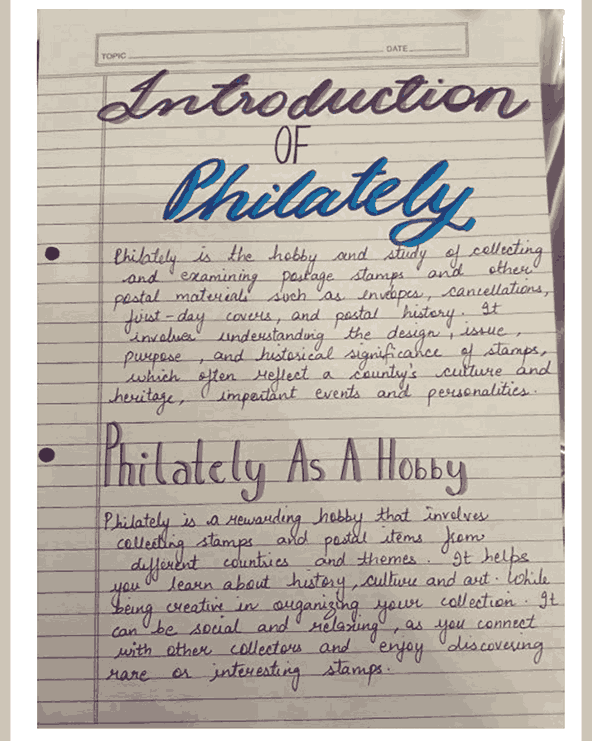 TOPIC
DATE
Introduction
OF
Philately
Philately is the hobby and study of collecting
and examining postage stamps and other
postal materials such as enveopes, cancellations,
first-day covers, and postal history. It
involves understanding the design, issue,
purpose, and historical significance of stamps,
which often reflect a county's culture and
heritage, important events and personalities.
Philately As A Hobby
Philately is a rewarding hobby that involves
collecting stamps and postal items from
different countries and themes. It helps
you learn about history, culture and art. While
being creative in organizing your collection. It
can be social and relaxing, as you connect
with other collectors and enjoy discovering
rare or interesting stamps.